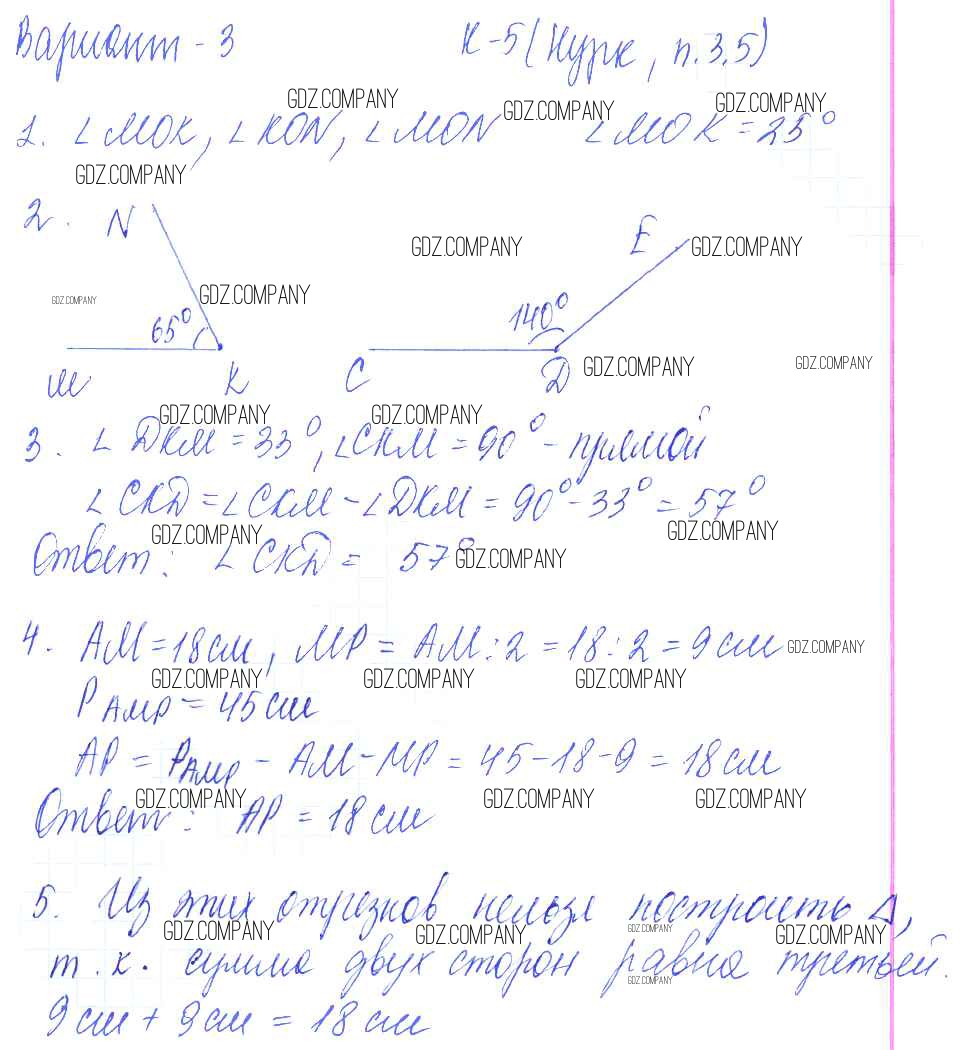 Вариант - 3 К-5 (Нурк, п.3.5)
GDZ.COMPANY GDZ.COMPANY GDZ.COMPANY
1. ∠MOK, ∠KON, ∠MON ∠MOK = 25°
GDZ.COMPANY
2. N E
GDZ.COMPANY GDZ.COMPANY
GDZ.COMPANY GDZ.COMPANY
65° 140°
M K C D GDZ.COMPANY GDZ.COMPANY
GDZ.COMPANY GDZ.COMPANY
3. ∠DKM = 33°, ∠CKM = 90° - прямой
∠CKD = ∠CKM - ∠DKM = 90° - 33° = 57°
GDZ.COMPANY GDZ.COMPANY
Ответ: ∠CKD = 57° GDZ.COMPANY
4. AM = 18 см, MP = AM : 2 = 18 : 2 = 9 см GDZ.COMPANY
GDZ.COMPANY GDZ.COMPANY GDZ.COMPANY
P AMP = 45 см
AP = P AMP - AM - MP = 45 - 18 - 9 = 18 см
GDZ.COMPANY GDZ.COMPANY GDZ.COMPANY
Ответ: AP = 18 см
5. Из этих отрезков нельзя построить Δ,
GDZ.COMPANY GDZ.COMPANY GDZ.COMPANY GDZ.COMPANY
т.к. сумма двух сторон равна третьей.
GDZ.COMPANY
9 см + 9 см = 18 см